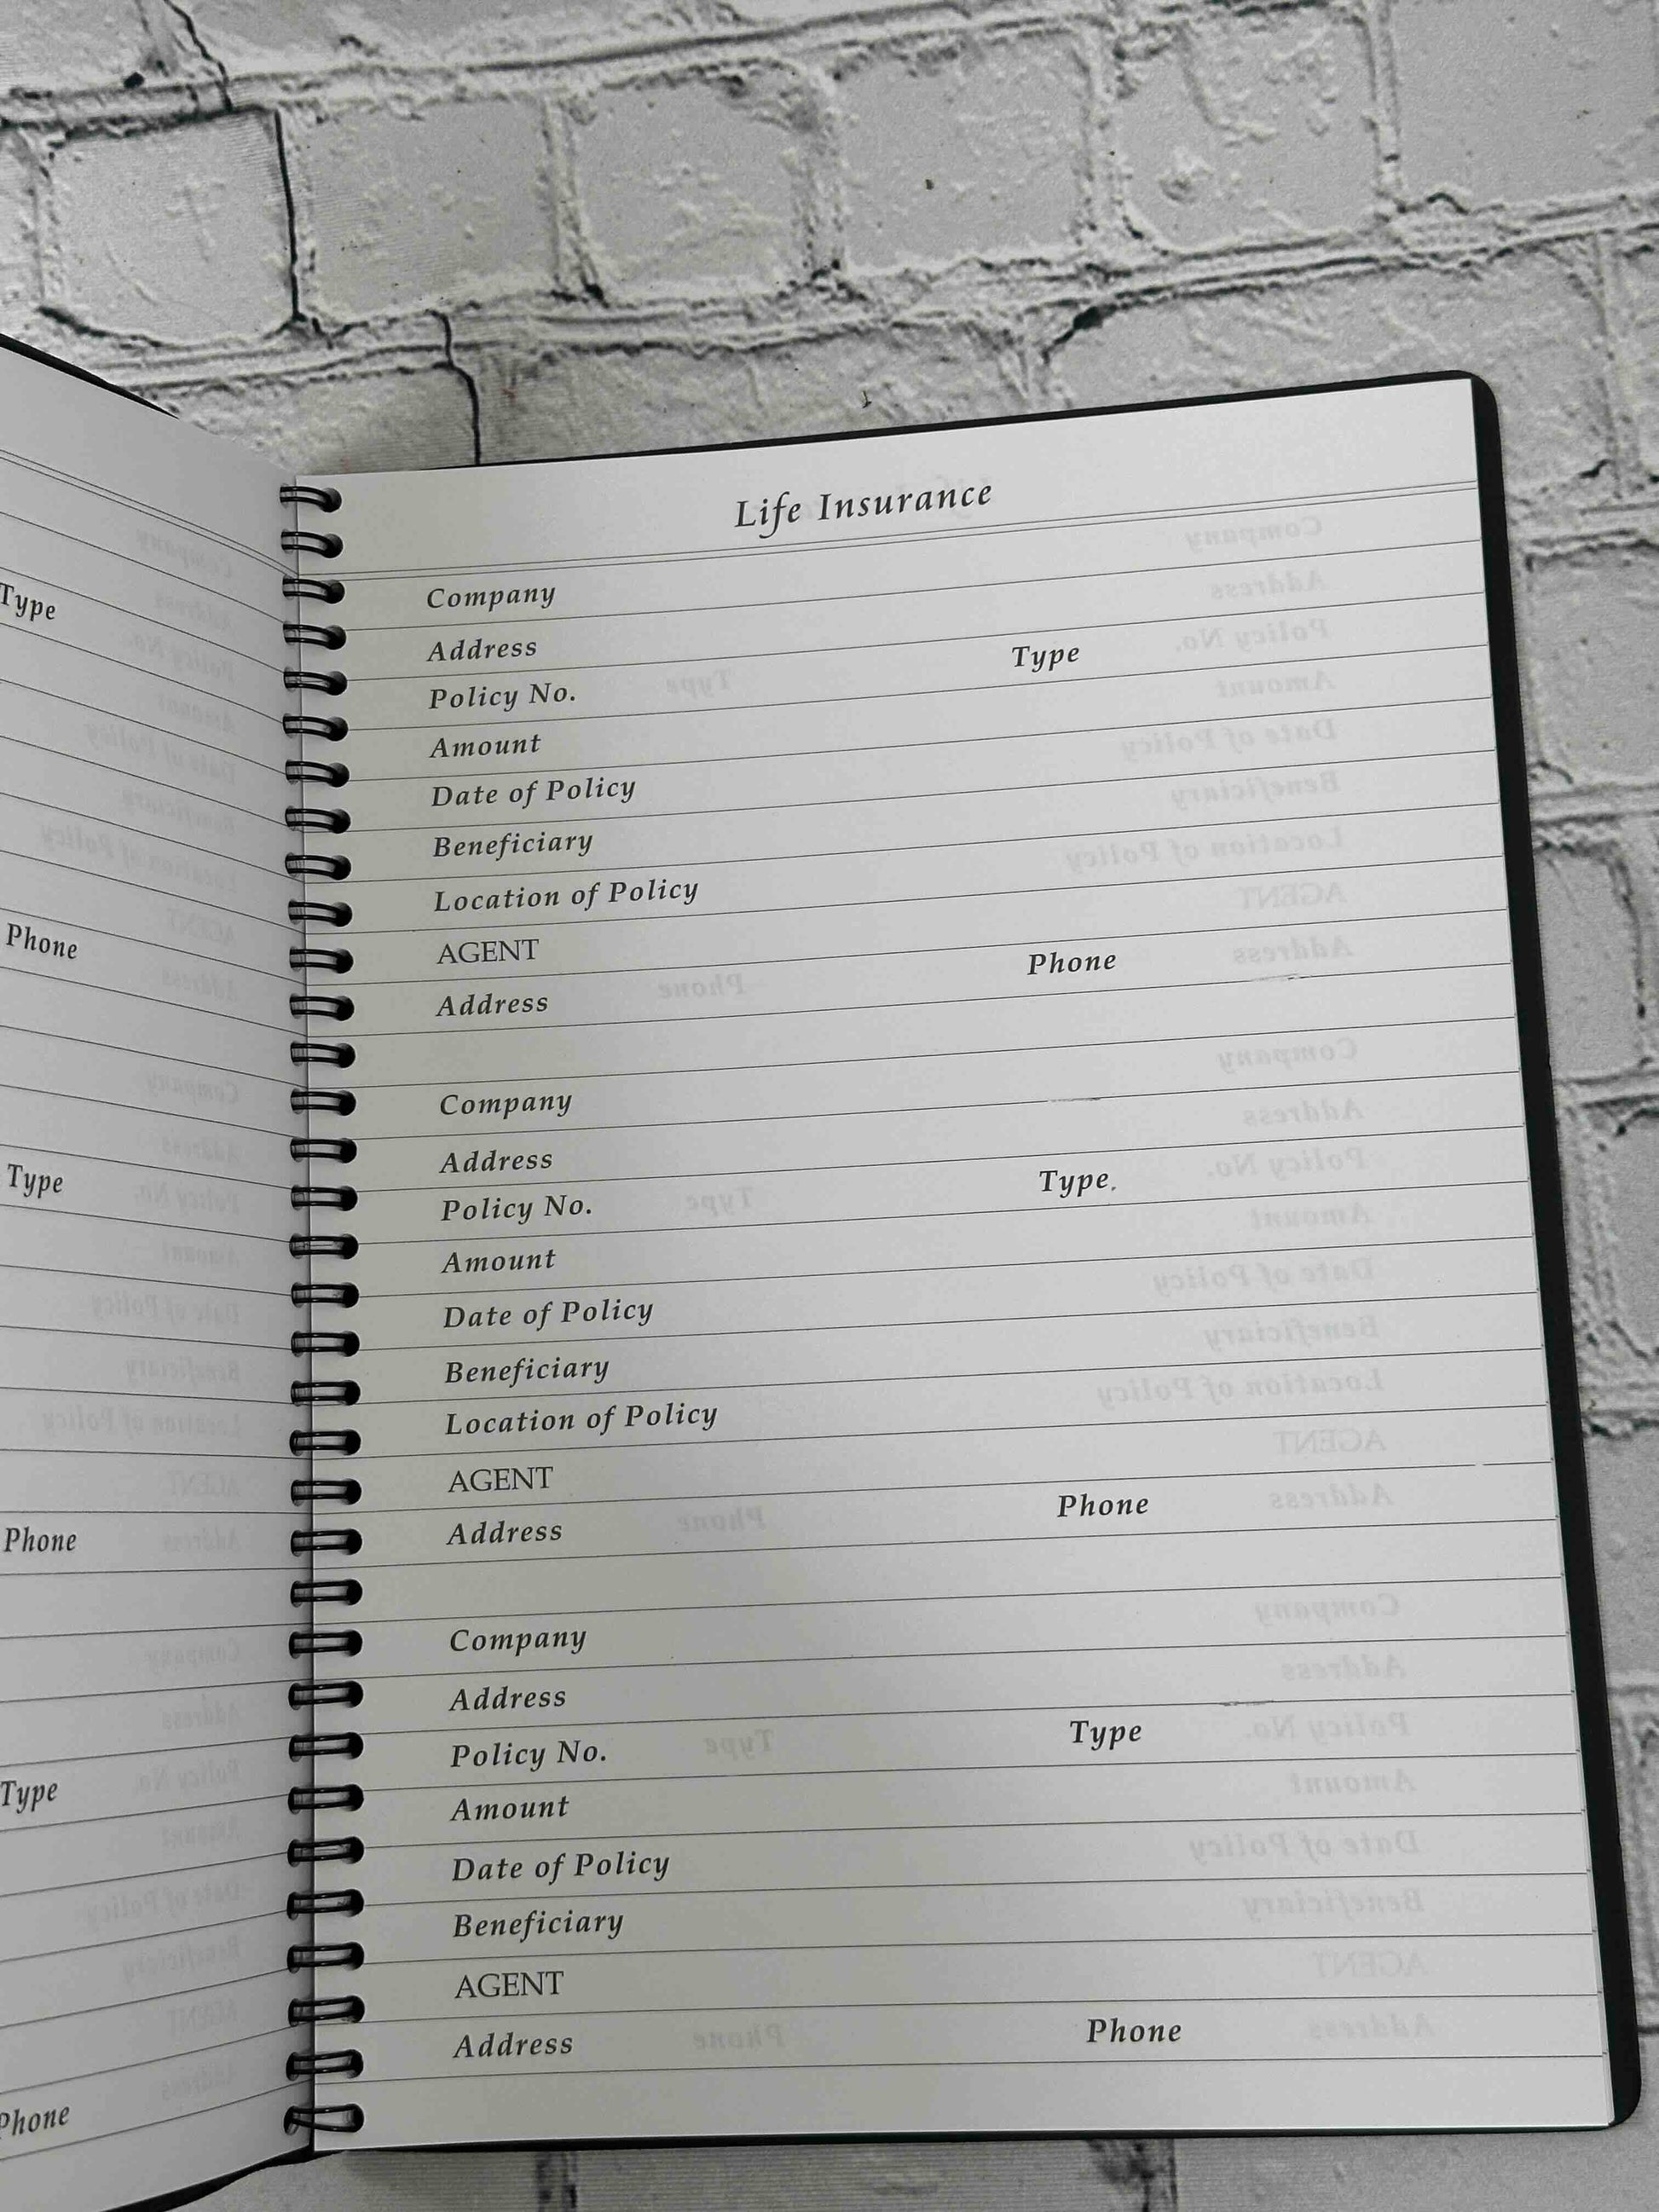 Type
Phone
Type
Phone
Type
Phone
Life Insurance
Company
Address
Policy No. Type
Amount
Date of Policy
Beneficiary
Location of Policy
AGENT
Address Phone
Company
Address
Policy No. Type
Amount
Date of Policy
Beneficiary
Location of Policy
AGENT
Address Phone
Company
Address
Policy No. Type
Amount
Date of Policy
Beneficiary
AGENT
Address Phone